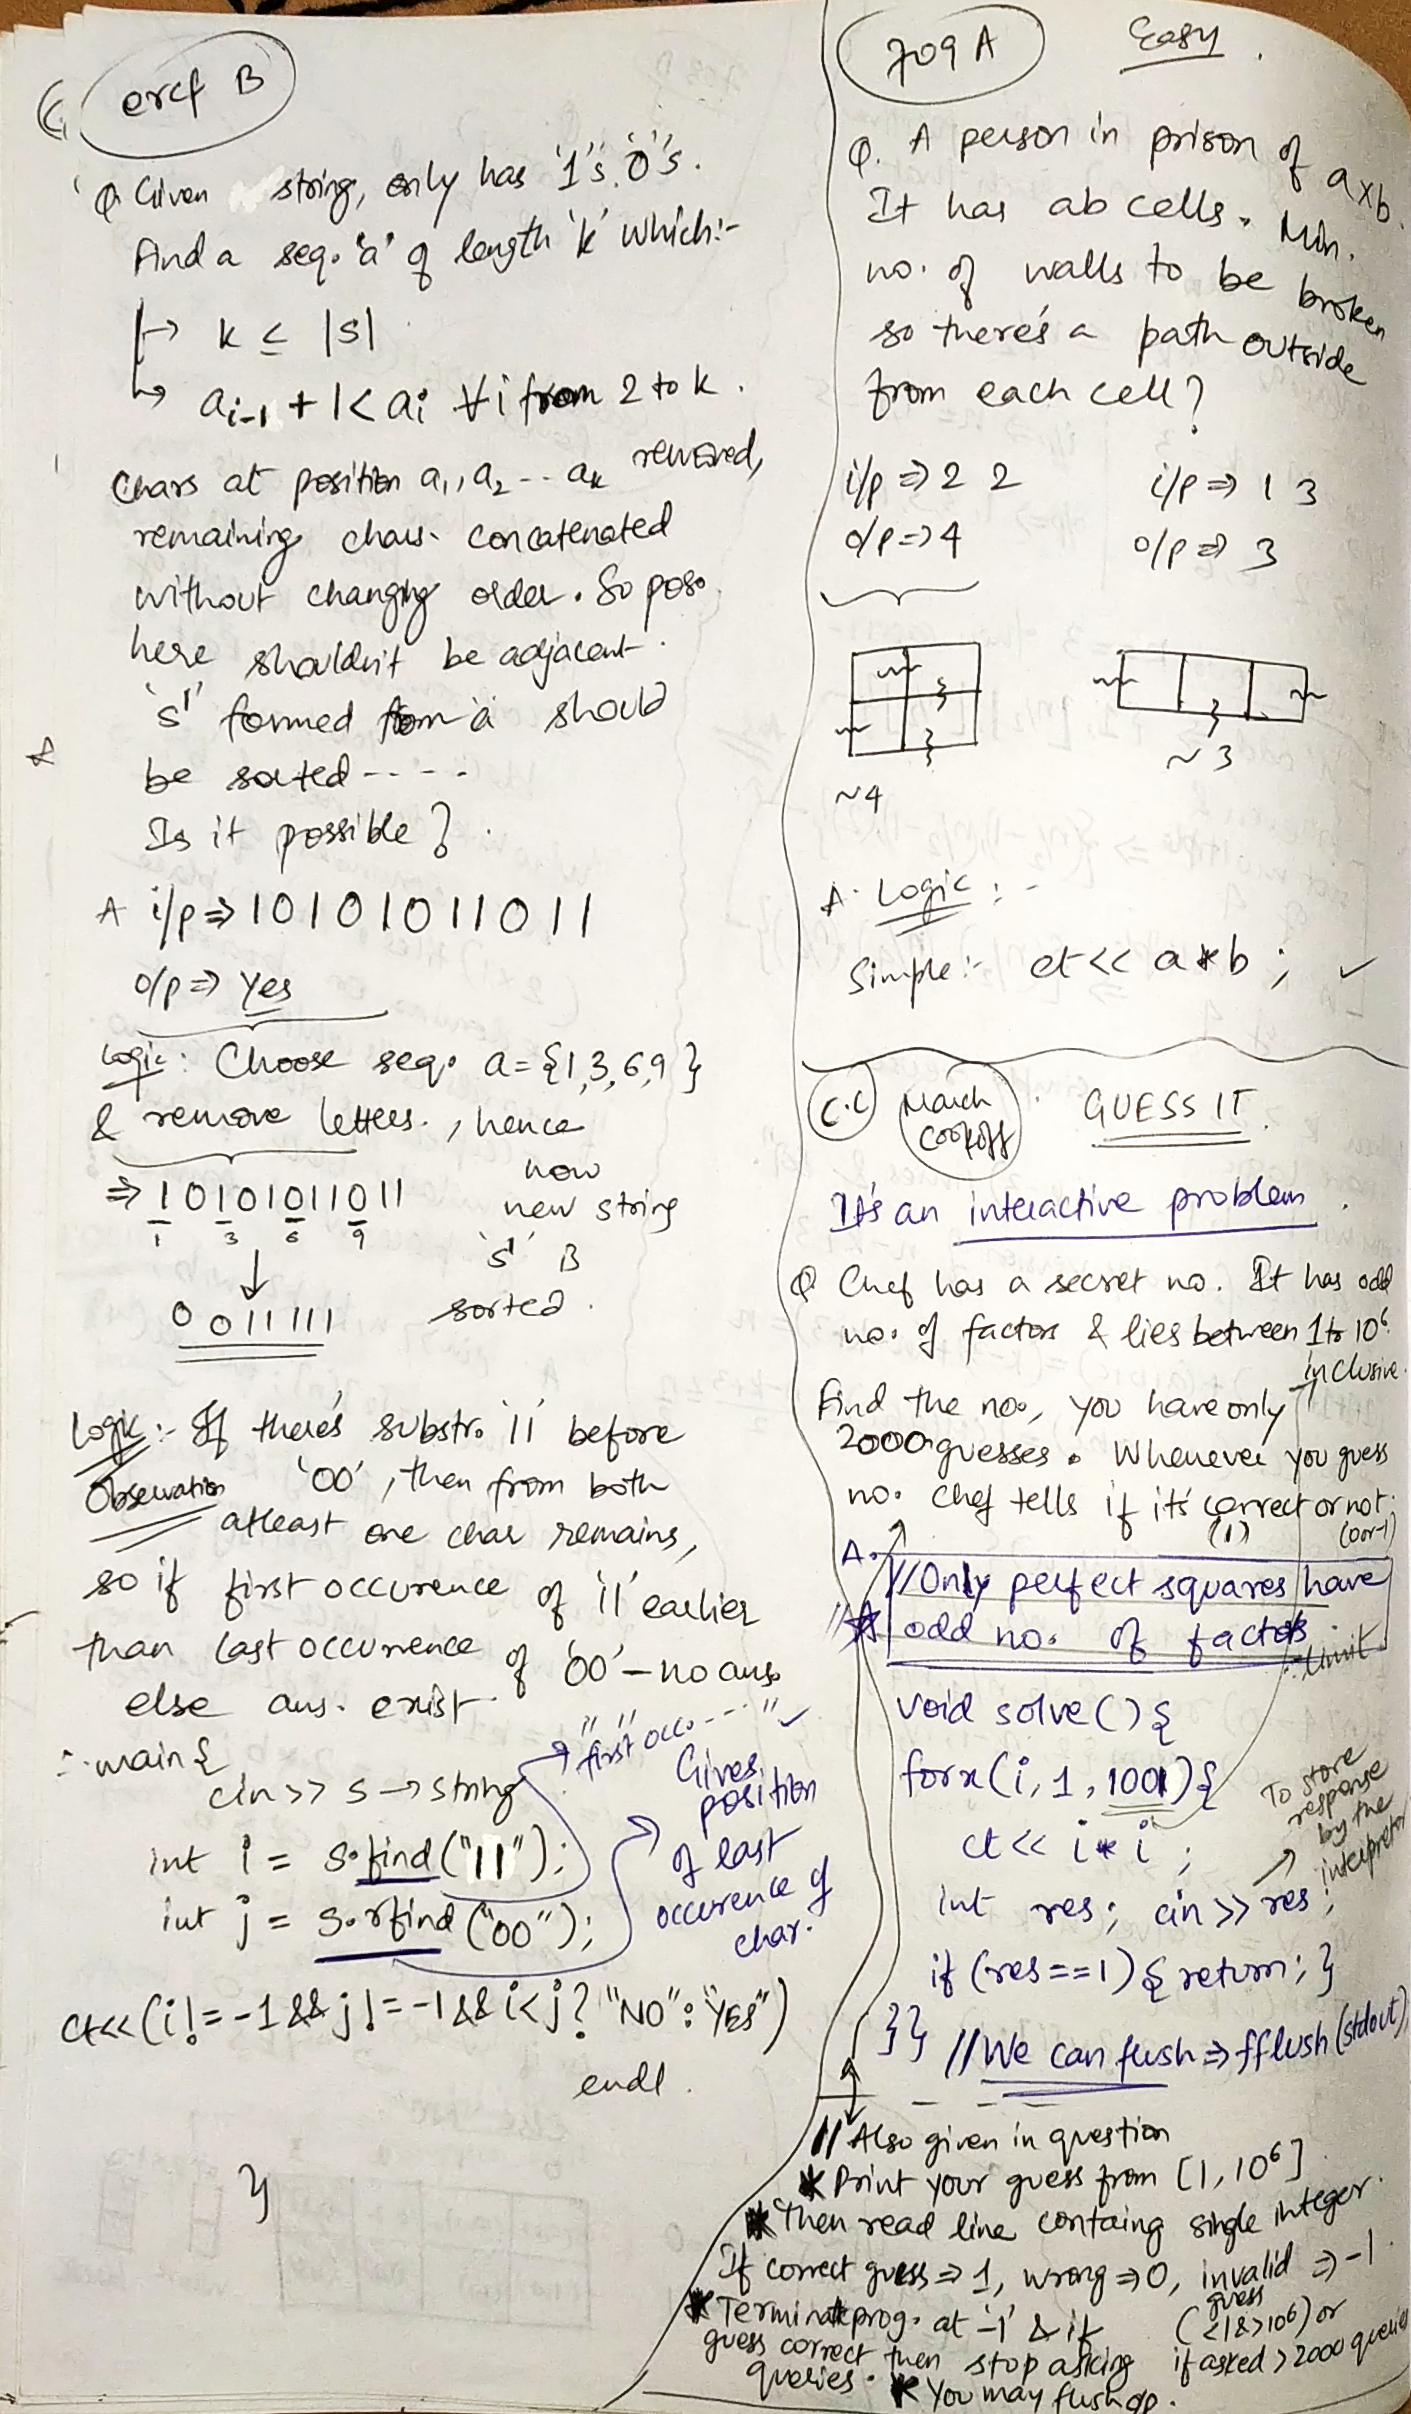 ercf B
Q. Given string, only has '1's, '0's.
Find a seq. 'a' of length 'k' which:-
→ k ≤ |s|
→ a_{i-1} + 1 < a_i ∀ i from 2 to k.
Chars at position a₁, a₂ -- a_k removed,
remaining chars. concatenated
without changing order. So poso
here shouldn't be adjacent.
's'' formed from a should
be sorted ----
Is it possible?
A i/p ⇒ 10101011011
o/p ⇒ Yes
Logic: Choose seq. a = {1,3,6,9}
& remove letters., hence
⇒ 10101011011
1 3 6 9
now
new string
's'' is
sorted.
↓
0011111
Logic:- If there's substr. '11' before
Observation '00', then from both
atleast one char remains,
so if first occurence of '11' earlier
than last occurrence of '00' - no ans
else ans. exist.
∴ main {
cin >> s → string
"first occ. --- " ✓
int i = s.find("11");
int j = s.rfind("00");
Gives position
of last
occurence of
char.
ct<<(i!=-1 && j!=-1 && i<j? "NO":"YES")
endl.
}
709 A Easy.
Q. A person in prison of axb.
It has ab cells. Min.
no. of walls to be broken
so there's a path outside
from each cell?
i/p ⇒ 2 2 i/p ⇒ 1 3
o/p ⇒ 4 o/p ⇒ 3
~4 ~3
A. Logic:-
Simple:- ct << a*b; ✓
C.C March Cookoff GUESS IT
It's an interactive problem.
Q Chef has a secret no. It has odd
no. of factors & lies between 1 to 10⁶
inclusive.
Find the no., you have only
2000 guesses. Whenever you guess
no. Chef tells if it's correct or not.
(1) (0 or -1)
A. //Only perfect squares have
odd no. of factors.
∴ limit
void solve(){
forx(i,1,1001){
ct << i*i;
int res; cin >> res;
To store
response
by the
interpretor
if (res==1){return;}
}} //We can flush ⇒ fflush(stdout);
// Also given in question
* Print your guess from [1,10⁶]
* Then read line containg single integer.
If correct guess ⇒ 1, wrong ⇒ 0, invalid guess ⇒ -1.
(<1&>10⁶) or
if asked > 2000 queries
* Terminate prog. at '-1' & if
guess correct then stop asking
queries. * You may flush o/p.